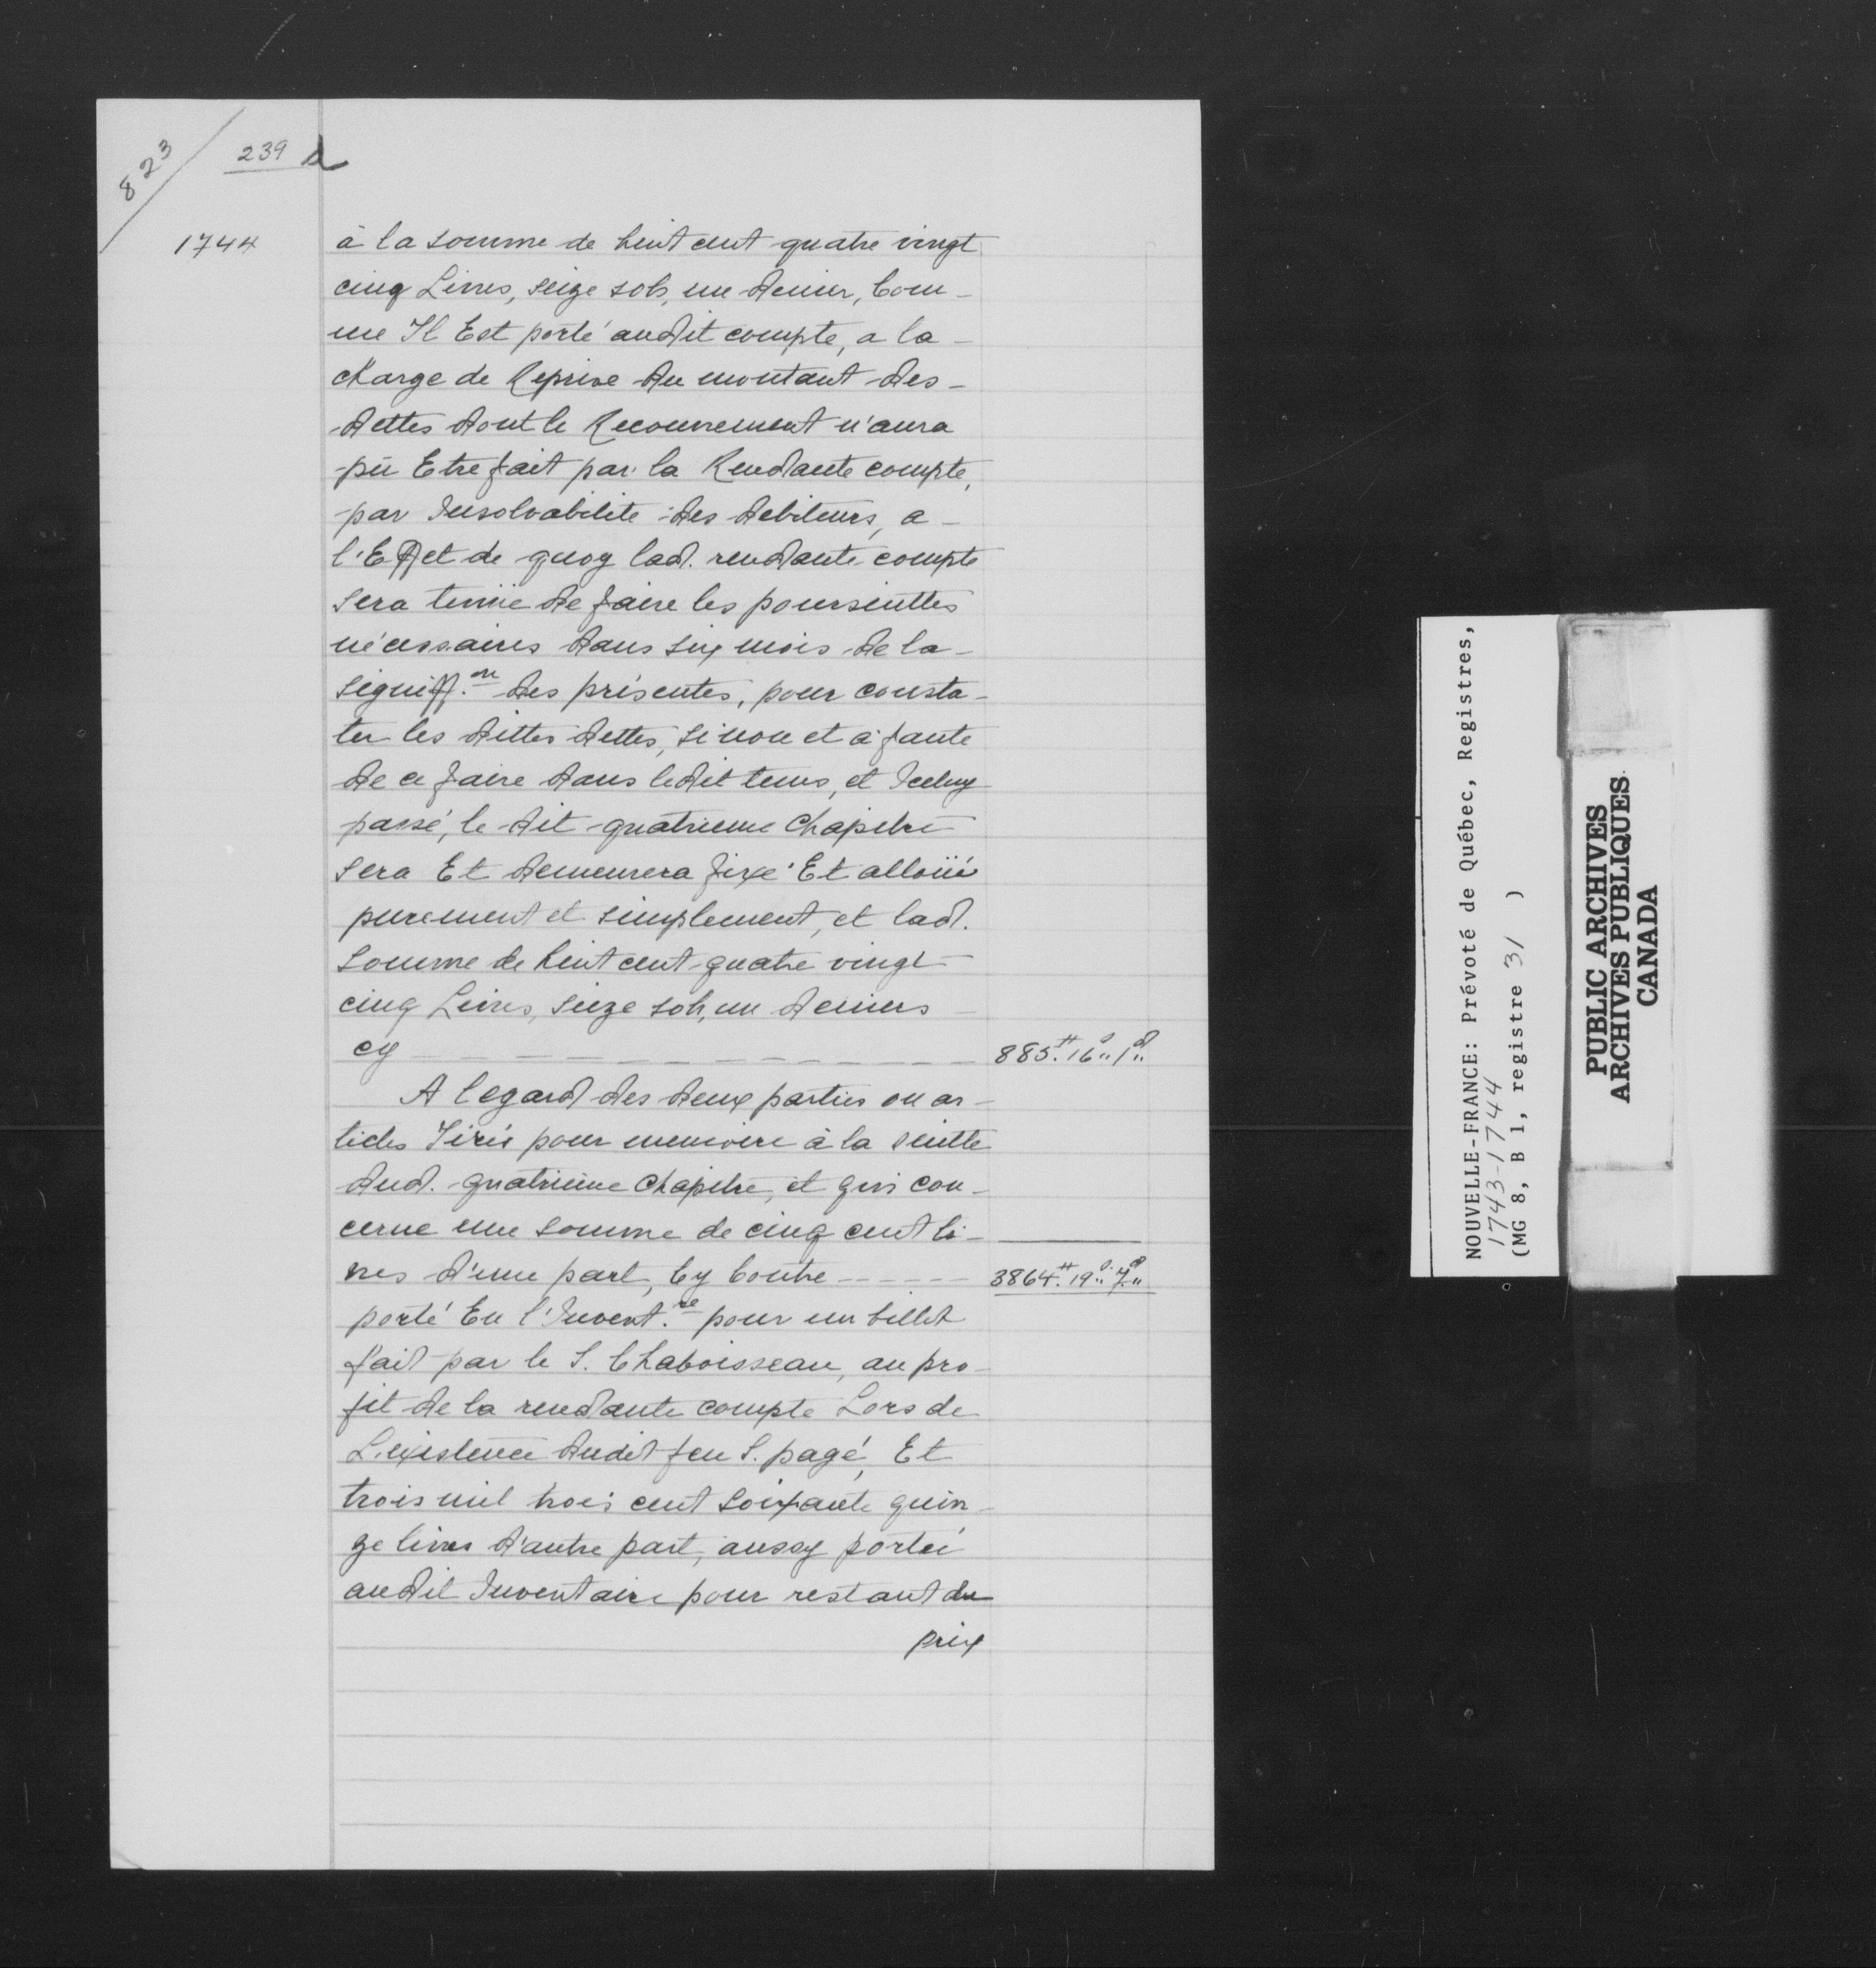 823
239
1744
à la somme de huit cent quatre vingt
cinq Livres, seize sols, un denier, Com-
me Il Est porté audit compte, a la-
charge de Reprise du montant des-
dettes dont le Recouvrement n'aura
pû Etre fait par la Rendante compte,
par Insolvabilité des debiteurs, a-
l'Effet de quoy lad. rendante compte
sera tenüe de faire les poursuittes
nécessaires dans six mois de la-
signiff.on des présentes, pour consta-
ter les dittes dettes, sinon et à faute
de ce faire dans ledit tems, et Iceluy
passé, le dit quatrieme Chapitre
sera Et demeurera fixé Et alloüé
purement et simplement, et lad.
somme de huit cent quatre vingt
cinq Livres, seize sols, un deniers
cy — 885.# 16.s 1.d
A l'egard des deux parties ou ar-
ticles Tirés pour memoire à la suitte
dud. quatrième Chapitre, et qui con-
cerne une somme de cinq cent li-
vres d'une part, Cy Contre ----- 3864.# 19.s 7.d
porté En l'Invent.re pour un billet
fait par le S. Chaboisseau, au pro-
fit de la rendante compte Lors de
L'existence dudit feu S. pagé, Et
trois mil trois cent soixante quin-
ze livres d'autre part, aussy porteé
audit Inventaire pour restant du
prix
NOUVELLE-FRANCE: Prévoté de Québec, Registres,
1743-1744
(MG 8, B 1, registre 31 )
PUBLIC ARCHIVES
ARCHIVES PUBLIQUES
CANADA